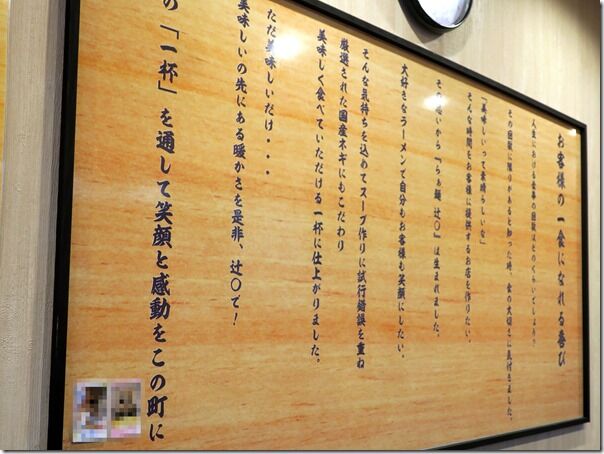 お客様の一食になれる喜び
人生における食事の回数はどのくらいでしょう？
その回数に限りがあると知った時、食の大切さに気付きました。
「美味しいって素晴らしいな」
そんな時間をお客様に提供するお店を作りたい。
その想いから『らぁ麺 辻〇』は生まれました。
大好きなラーメンで自分もお客様も笑顔にしたい。
そんな気持ちを込めてスープ作りに試行錯誤を重ね
厳選された国産ネギにもこだわり
美味しく食べていただける一杯に仕上がりました。
ただ美味しいだけ・・・
美味しいの先にある暖かさを是非、辻〇で！
の「一杯」を通して笑顔と感動をこの町に